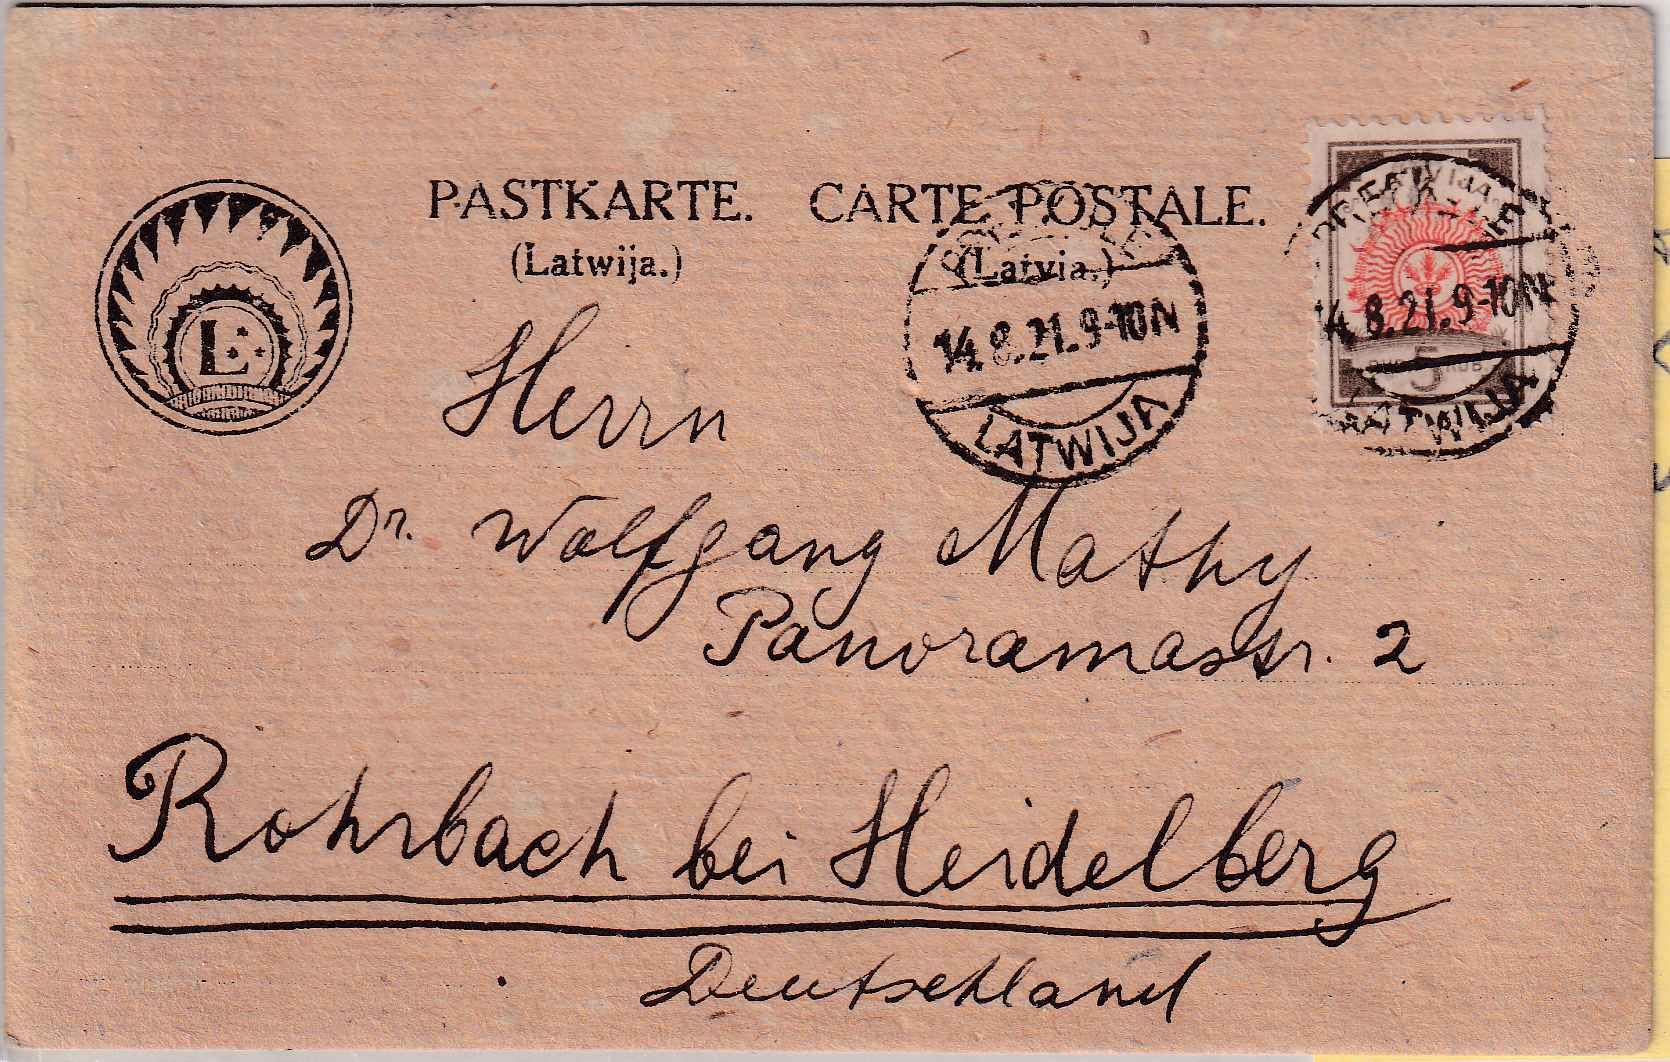 PASTKARTE. CARTE POSTALE.
(Latwija.) (Latvia.)
L
14.8.21.9-10N
LATWIJA
14.8.21.9-10N
5
LATWIJA
Herrn
Dr. Wolfgang Mathy
Panoramastr. 2
Rohrbach bei Heidelberg
Deutschland